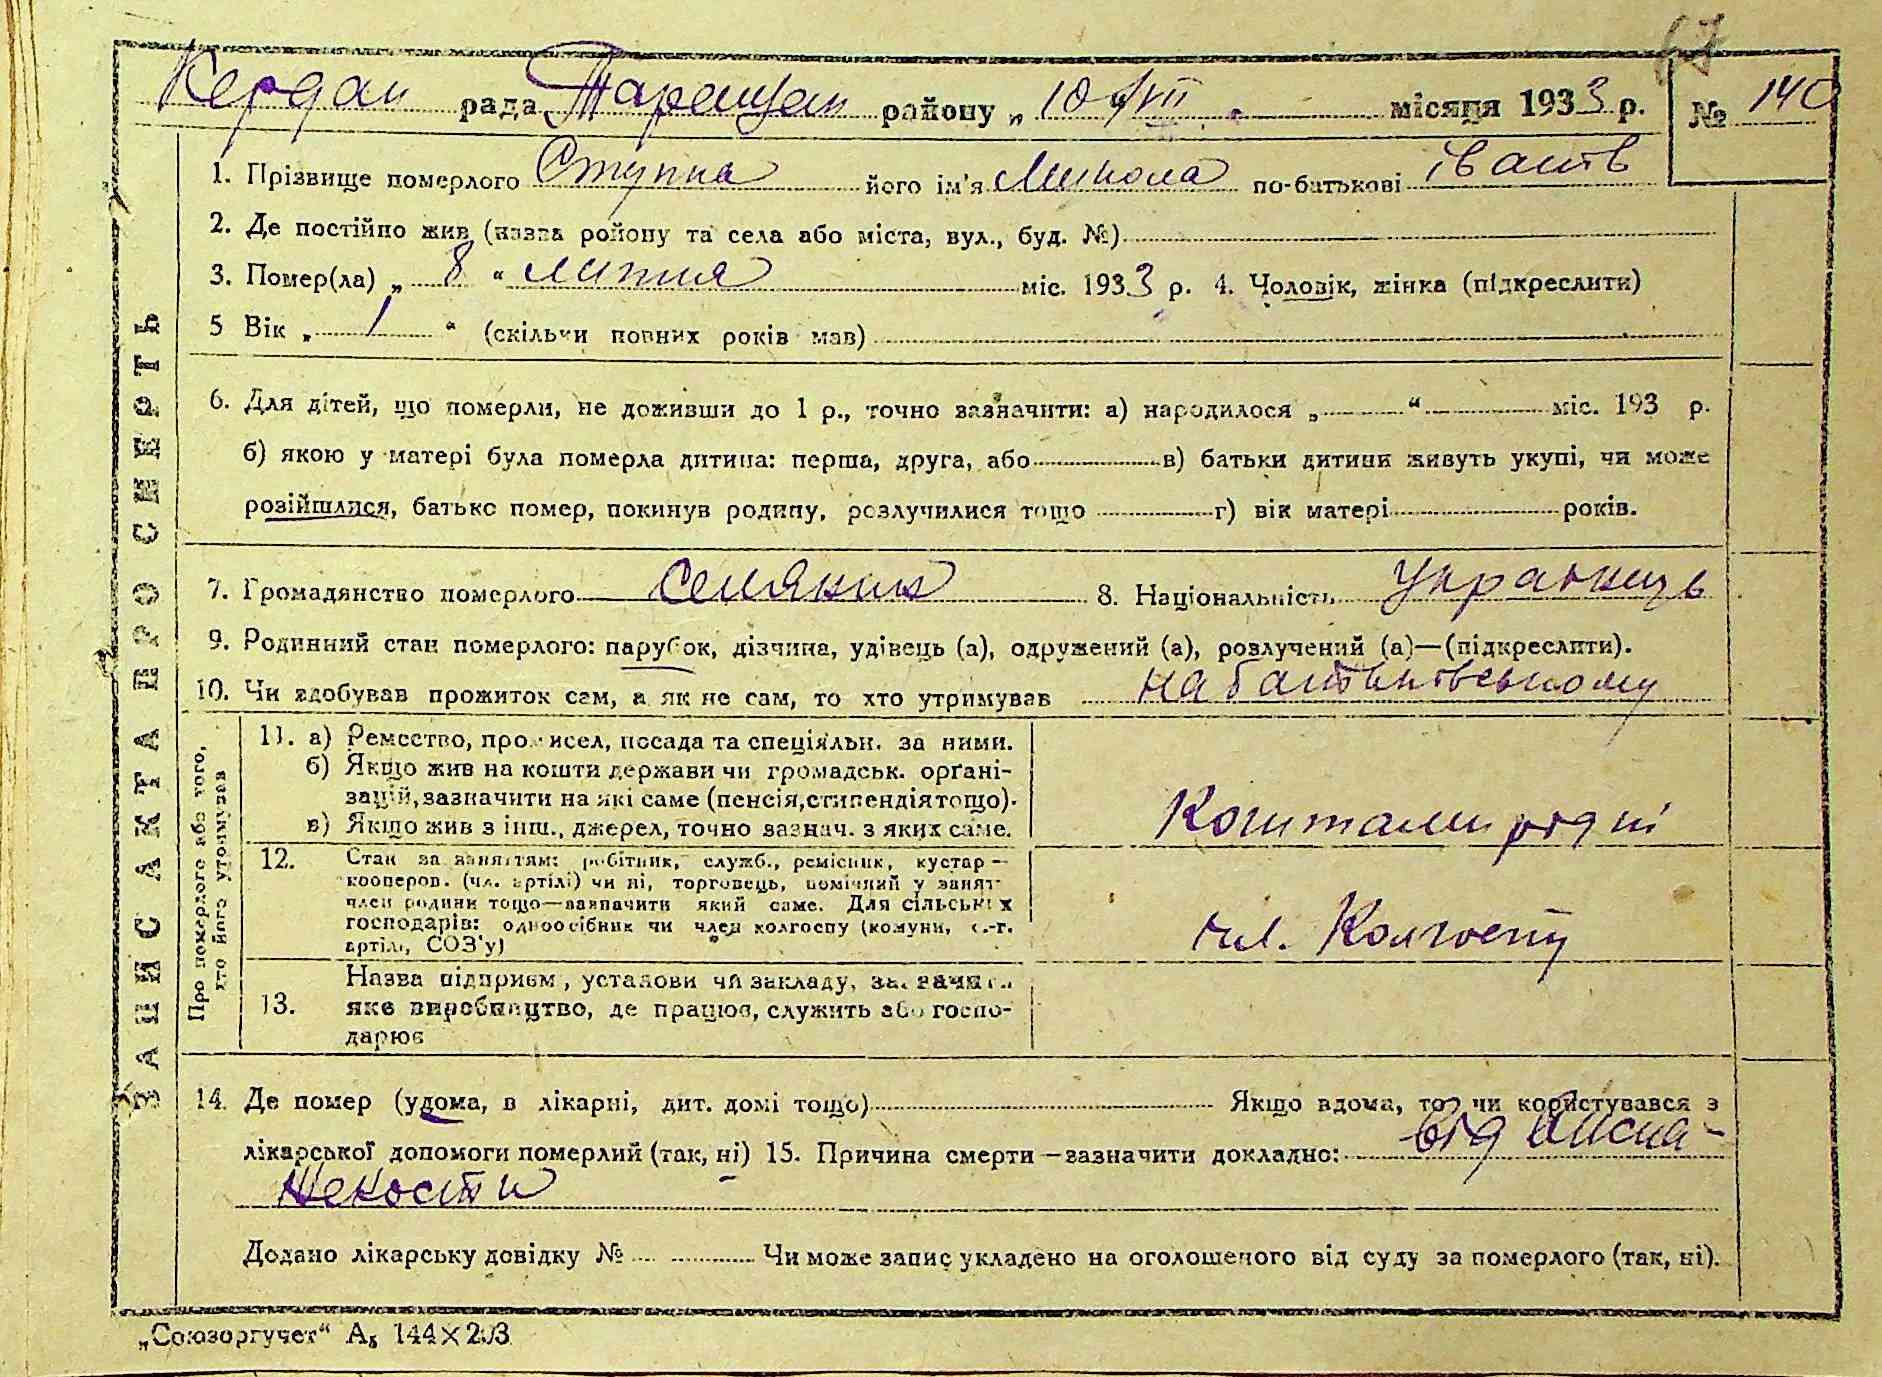 67
Кердан рада Таращан району „ 10 " VII місяця 1933 р. № 140
1. Прізвище померлого Ступка його ім'я Микола по-батькові Іванів
2. Де постійно жив (назва району та села або міста, вул., буд. №)
3. Помер(ла) „ 8 “ липня міс. 1933 р. 4. Чоловік, жінка (підкреслити)
5 Вік „ 1 “ (скільки повних років мав)
6. Для дітей, що померли, не доживши до 1 р., точно зазначити: а) народилося „ “ міс. 193 р.
б) якою у матері була померла дитина: перша, друга, або в) батьки дитини живуть укупі, чи може
розійшлися, батько помер, покинув родину, розлучилися тощо г) вік матері років.
7. Громадянство померлого селянин 8. Національність Українець
9. Родинний стан померлого: парубок, дівчина, удівець (а), одружений (а), розлучений (а)—(підкреслити).
10. Чи здобував прожиток сам, а як не сам, то хто утримував на батьківському
ЗАПИС АКТА ПРО СМЕРТЬ
Про померлого або того,
хто його утримував
11. а) Ремество, промисел, посада та спеціяльн. за ними.
б) Якщо жив на кошти держави чи громадськ. органі-
зацій, зазначити на які саме (пенсія, стипендія тощо).
в) Якщо жив з інш., джерел, точно зазнач. з яких саме.
Коштами рідні
12. Стан за заняттям: робітник, служб., ремісник, кустар—
кооперов. (чл. артілі) чи ні, торговець, помічний у занят
член родини тощо—зазначити який саме. Для сільських
господарів: одноосібник чи член колгоспу (комуни, с.-г.
артілі, СОЗ'у)
чл. Колгоспу
13. Назва підприєм, установи чи закладу, зазначити
яке виробництво, де працює, служить або госпо-
дарює
14. Де помер (удома, в лікарні, дит. домі тощо) Якщо вдома, то чи користувався з
лікарської допомоги померлий (так, ні) 15. Причина смерти—зазначити докладно: від висна-
жености
Додано лікарську довідку № Чи може запис укладено на оголошеного від суду за померлого (так, ні).
„Союзоргучет“ А₅ 144×203